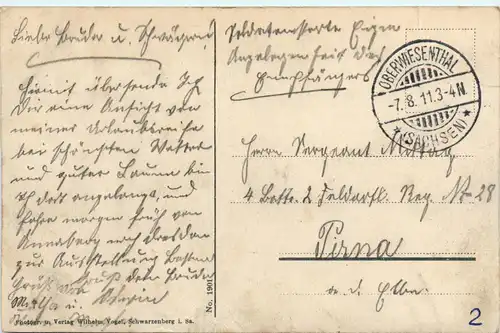 Liebe Bruder u. Schwägerin!
Hiermit übersende
Dir eine Ansicht von
meiner Urlaubsreise
bei schönsten Wetter
und guter Laune bin
ich dort angelangt, und
fahre morgen früh von
Annaberg nach Dresden
zur Ausstellung. Besten
Gruß Dein Bruder
Martha u. Edwin
Soldatenkarte Eigen
Angelegenheit des
Empfängers
OBERWIESENTHAL
-7.8.11.3-4N.
*(SACHSEN)*
Herrn Sergeant
4 Battr. 2 Feldartl. Reg. No 28
Pirna
a. d. Elbe.
No. 1901
Photogr. u. Verlag Wilhelm Vogel, Schwarzenberg i. Sa.
2